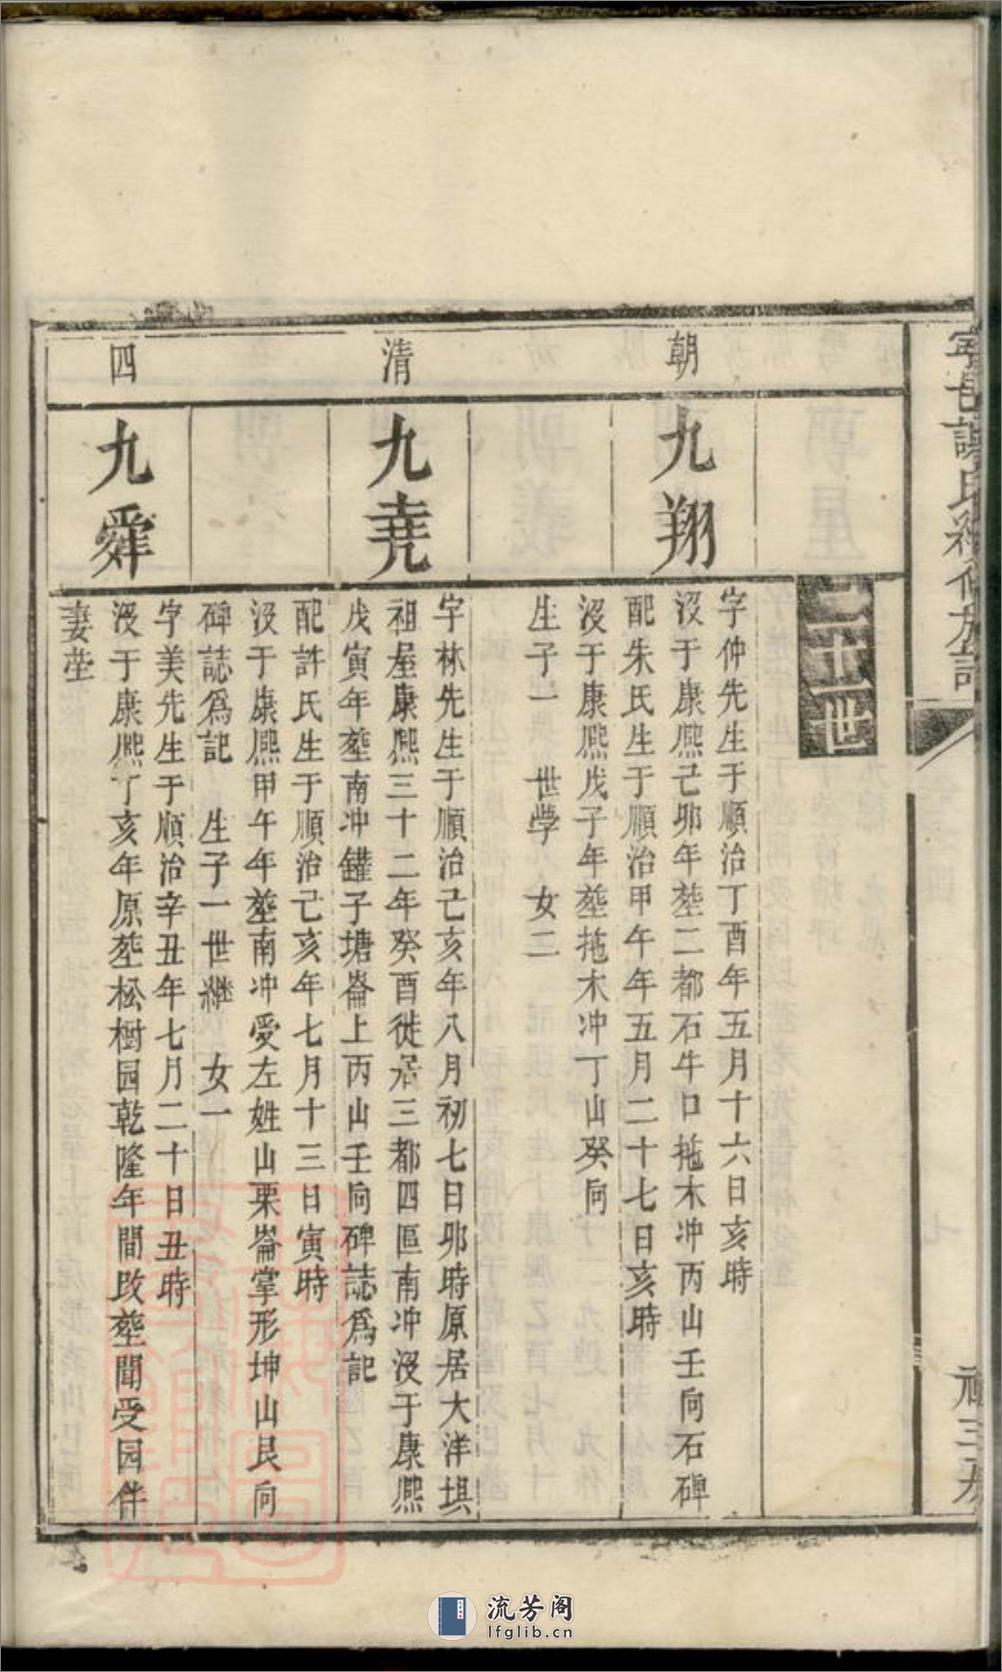 二十一世
朝
九翔
字仲先生于順治丁酉年五月十六日亥時
沒于康熙己卯年塟二都石牛口拖木冲丙山壬向石碑
配朱氏生于順治甲午年五月二十七日亥時
沒于康熙戊子年塟拖木冲丁山癸向
生子一 世學 女二
清
九堯
字林先生于順治己亥年八月初七日卯時原居大洋垻
祖屋康熙三十二年癸酉徙居三都四區南冲沒于康熙
戊寅年塟南冲鑵子塘崙上丙山壬向碑誌爲記
配許氏生于順治己亥年七月十三日寅時
沒于康熙甲午年塟南冲愛左姓山栗崙掌形坤山艮向
碑誌爲記 生子一世繼 女一
四
九舜
字美先生于順治辛丑年七月二十日丑時
沒于康熙丁亥年原塟松樹园乾隆年間改塟聞受园伴
妻塋
流芳阁
lfglib.cn